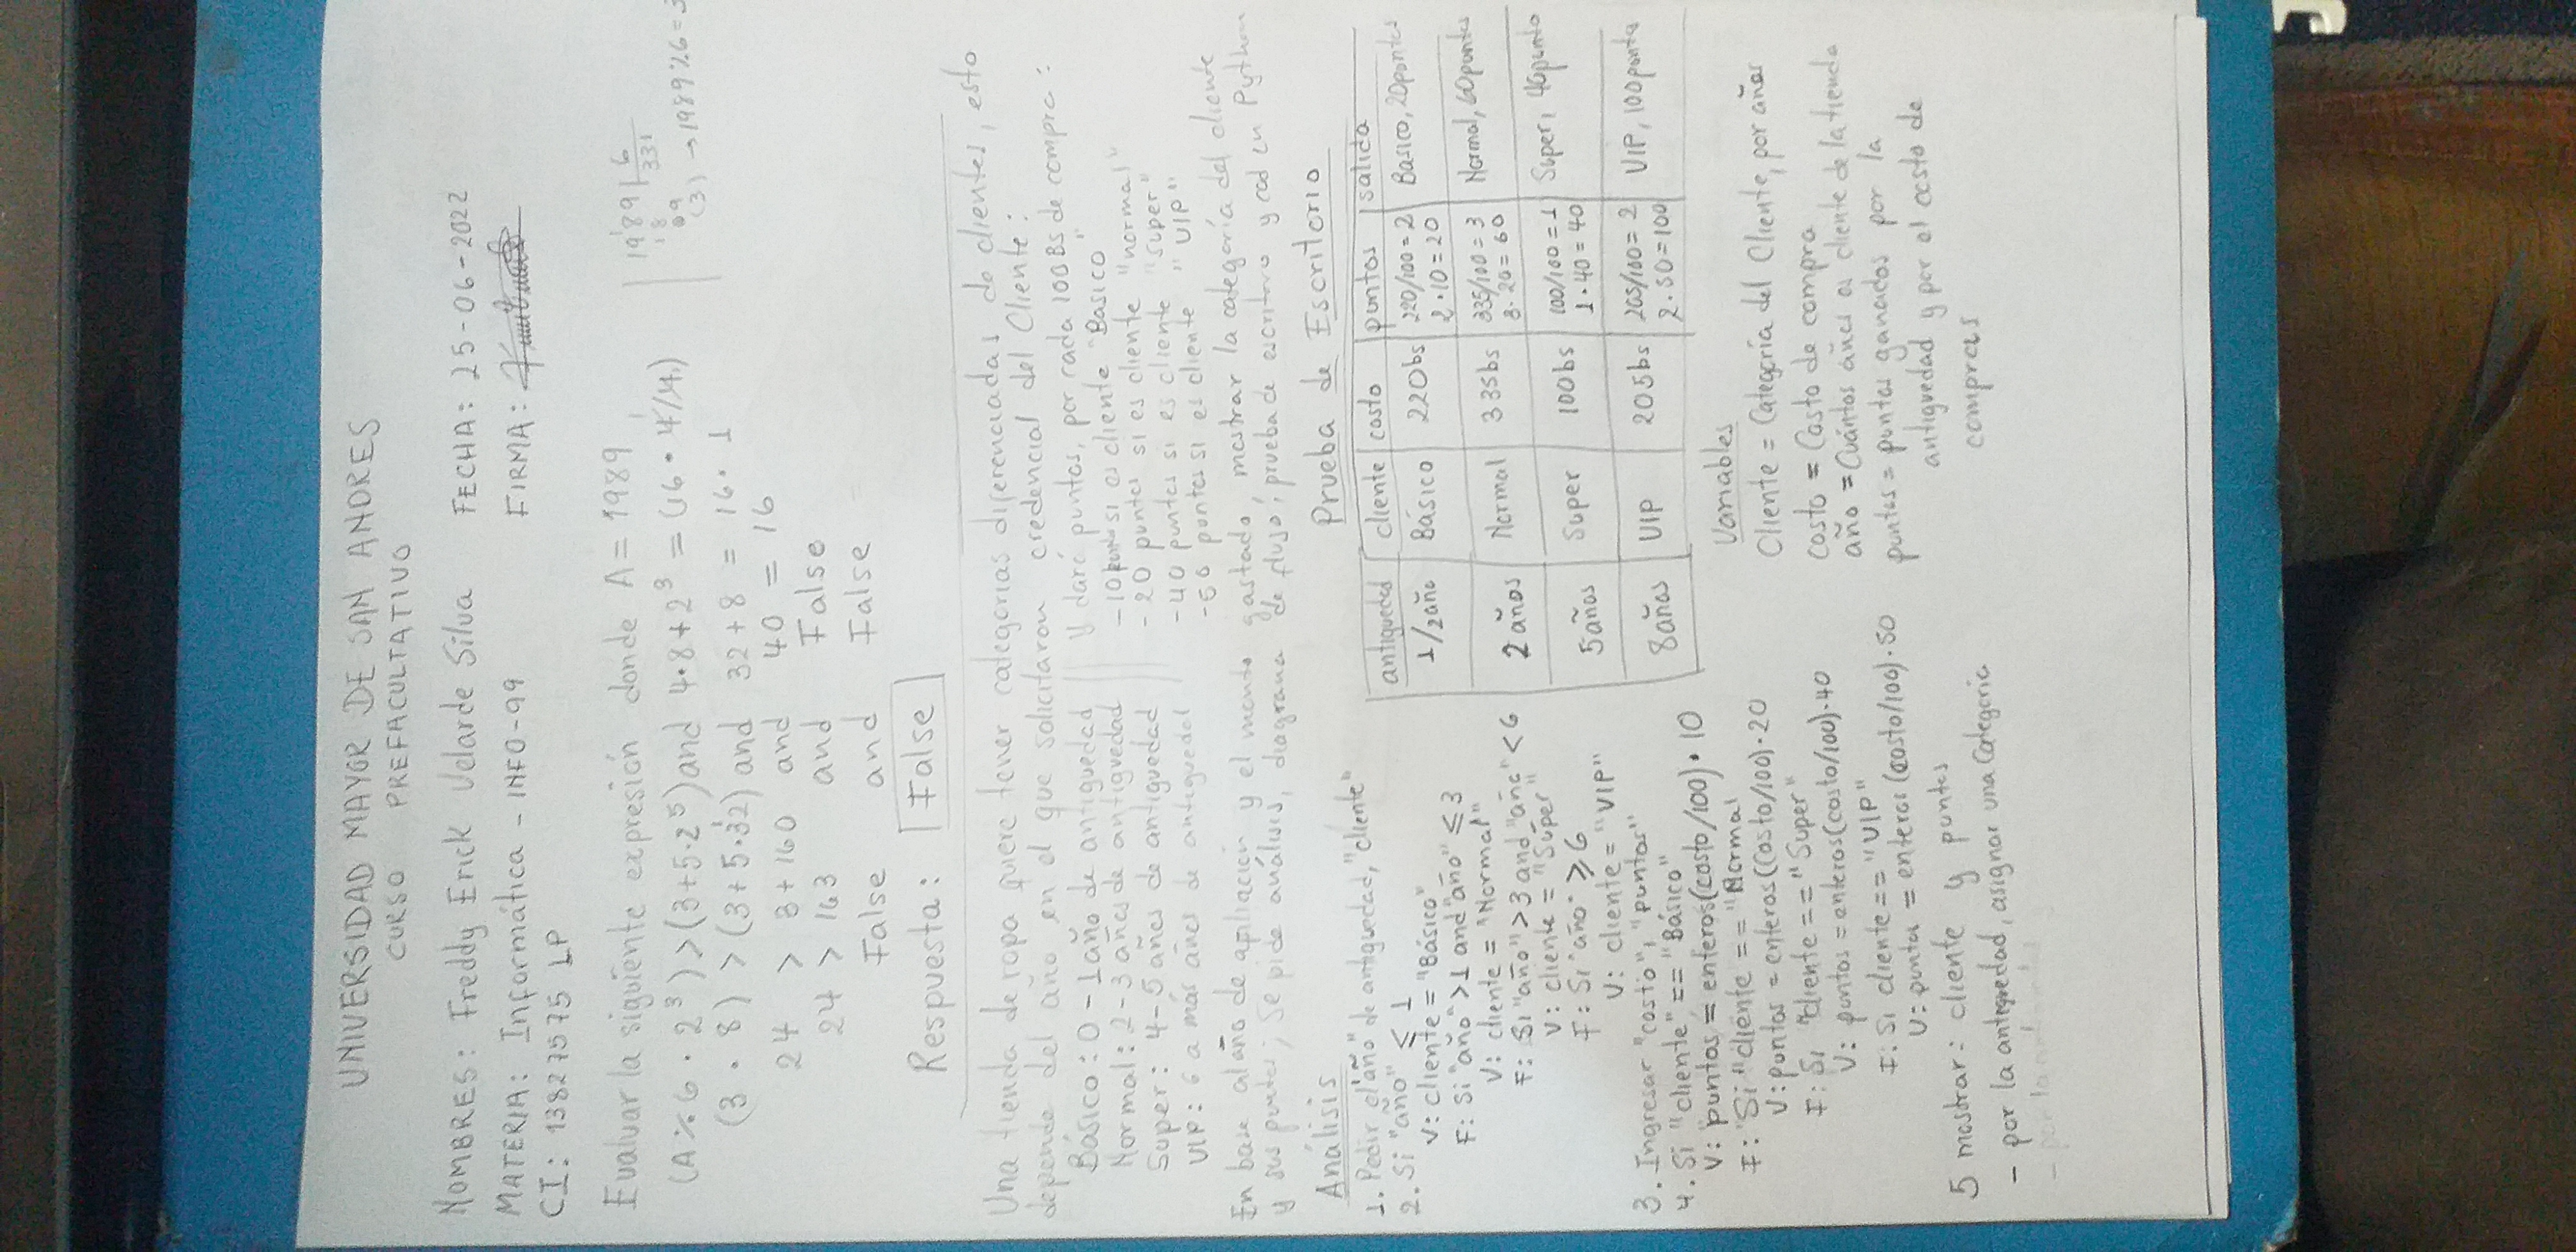 UNIVERSIDAD MAYOR DE SAN ANDRES
CURSO PREFACULTATIVO
NOMBRES: Freddy Erick Velarde Silva FECHA: 25-06-2022
MATERIA: Informática - INFO-99 FIRMA:
CI: 13827575 LP
Evaluar la siguiente expresión donde A = 1989
(A % 6 · 2³) > (3+5·2⁵) and 4·8+2³ = (16 · 4/4)
(3 · 8) > (3+5·32) and 32+8 = 16 · 1
24 > 3+160 and 40 = 16
24 > 163 and False
False and False
Respuesta: False
1989 6
18 331
09
(3) → 1989%6=3
Una tienda de ropa quiere tener categorias diferenciadas de clientes, esto
depende del año en el que solicitaron credencial del Cliente:
Básico: 0 - 1 año de antiguedad
Normal: 2-3 años de antiguedad
Super: 4-5 años de antiguedad
VIP: 6 a más años de antiguedad
Y dará puntos, por cada 100Bs de compra:
-10 puntos si es cliente "Basico"
-20 puntos si es cliente "normal"
-40 puntos si es cliente "super"
-50 puntos si es cliente "VIP"
En base al año de afiliación y el monto gastado, mostrar la categoría del cliente
y sus puntos; Se pide análisis, diagrama de flujo, prueba de escritorio y cod en Python
Análisis
1. Pedir el "año" de antiguedad, "cliente"
2. Si "año" ≤ 1
V: cliente = "Básico"
F: Si "año" > 1 and "año" ≤ 3
V: cliente = "Normal"
F: Si "año" > 3 and "año" < 6
V: cliente = "Súper"
F: Si "año" ≥ 6
V: cliente = "VIP"
3. Ingresar "costo", "puntos"
4. Si "cliente" == "Básico"
V: puntos = enteros(costo/100) · 10
F: Si "cliente == "Normal
V: puntos = enteros(costo/100) · 20
F: Si "cliente == "Super"
V: puntos = enteros(costo/100) · 40
F: Si cliente == "VIP"
V: puntos = enteros (costo/100) · 50
5 mostrar: cliente y puntos
- por la antiguedad, asignar una Categoria
- por la
Prueba de Escritorio
antiguedad cliente costo puntos salida
1/2 año Básico 220bs 220/100 = 2 Basico, 20puntos
2 · 10 = 20
2 años Normal 335bs 335/100 = 3 Normal, 60puntos
3 · 20 = 60
5 años Super 100bs 100/100 = 1 Super, 40punto
1 · 40 = 40
8 años VIP 205bs 205/100 = 2 VIP, 100puntos
2 · 50 = 100
Variables
Cliente = Categoría del Cliente, por años
costo = Costo de compra
año = Cuántos años es cliente de la tienda
puntos = puntos ganados por la
antiguedad y por el costo de
compras